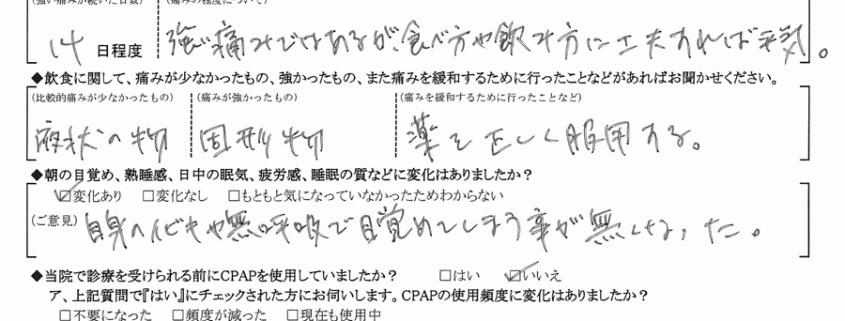 (強い痛みが続いた日数) (痛みの程度について)
14 日程度 強い痛みではあるが、食べ方や飲み方に工夫すれば平気。
◆飲食に関して、痛みが少なかったもの、強かったもの、また痛みを緩和するために行ったことなどがあればお聞かせください。
(比較的痛みが少なかったもの) (痛みが強かったもの) (痛みを緩和するために行ったことなど)
液状の物 固形物 薬を正しく服用する。
◆朝の目覚め、熟睡感、日中の眠気、疲労感、睡眠の質などに変化はありましたか？
☑変化あり □変化なし □もともと気になっていなかったためわからない
(ご意見) 自身のイビキや無呼吸で目覚めてしまう事が無くなった。
◆当院で診療を受けられる前にCPAPを使用していましたか？ □はい ☑いいえ
ア、上記質問で『はい』にチェックされた方にお伺いします。CPAPの使用頻度に変化はありましたか？
□不要になった □頻度が減った □現在も使用中